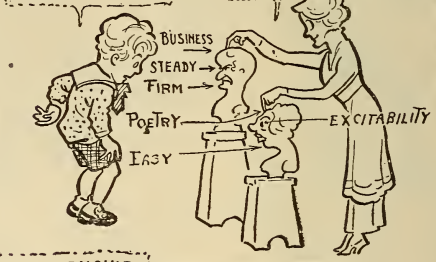 BUSINESS
STEADY
FIRM
POETRY
EXCITABILITY
EASY